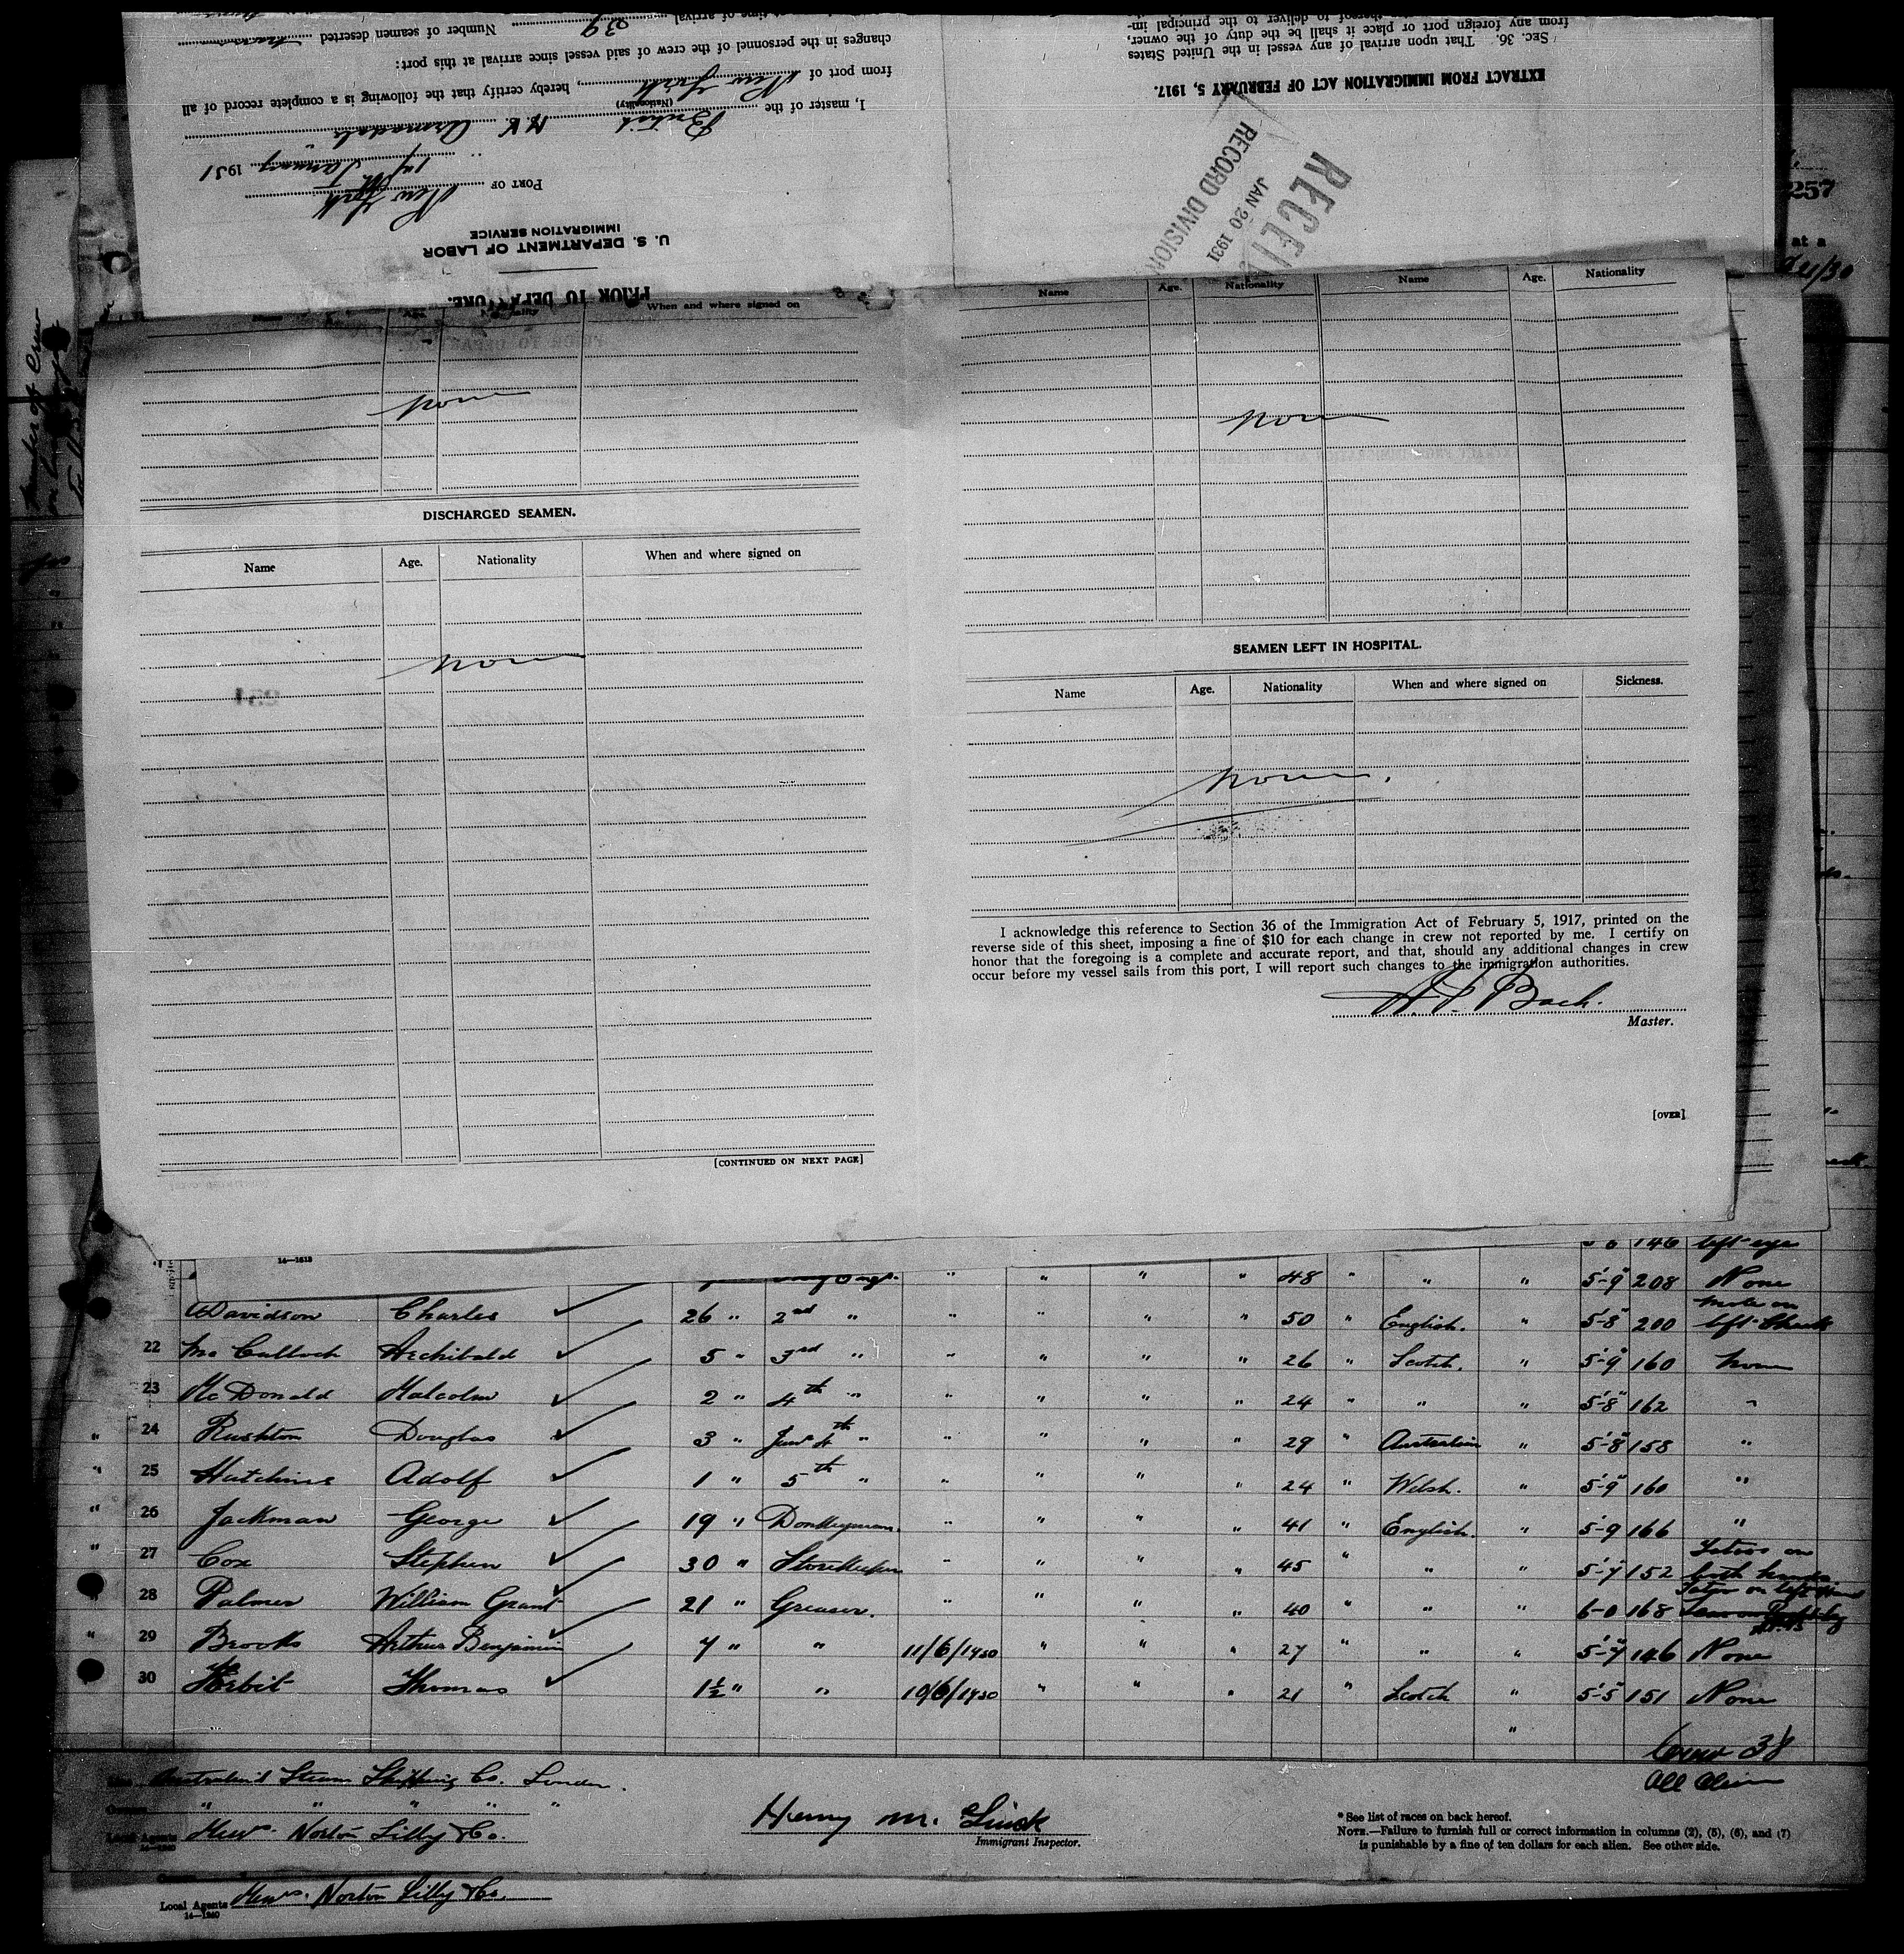 EXTRACT FROM IMMIGRATION ACT OF FEBRUARY 5, 1917.
SEC. 36. That upon arrival of any vessel in the United States
from any foreign port or place it shall be the duty of the owner,
thereof to deliver to the principal im-
PRIOR TO DEPARTURE.
U. S. DEPARTMENT OF LABOR
IMMIGRATION SERVICE
PORT OF New York
January 1931
I, master of the British M.V. Armadale
(Nationality)
from port of New York, hereby certify that the following is a complete record of all
changes in the personnel of the crew of said vessel since arrival at this port:
time of arrival 39 Number of seamen deserted
RECEIV
JAN 20 1931
RECORD DIVISION
257
at a
Name Age. Nationality When and where signed on
none
DISCHARGED SEAMEN.
Name Age. Nationality When and where signed on
none
[CONTINUED ON NEXT PAGE]
Name Age. Nationality Name Age. Nationality
none
SEAMEN LEFT IN HOSPITAL.
Name Age. Nationality When and where signed on Sickness.
none.
I acknowledge this reference to Section 36 of the Immigration Act of February 5, 1917, printed on the
reverse side of this sheet, imposing a fine of $10 for each change in crew not reported by me. I certify on
honor that the foregoing is a complete and accurate report, and that, should any additional changes in crew
occur before my vessel sails from this port, I will report such changes to the immigration authorities.
Bach.
Master.
[OVER]
146 left eye
14—1613
" " " " 48 " " " 5'-9" 208 None
Davidson Charles 26 " 2nd " " " " " 50 " English. " 5'-8" 200 mole on left cheek
22 McCulloch Archibald 5 " 3rd " " " " " 26 " Scotch. " 5'-9" 160 none
23 McDonald Malcolm 2 " 4th " " " " " 24 " " " 5'-8" 162 "
" 24 Rushton Douglas 3 " Junr 4th " " " " " 29 " Australian " 5'-8" 158 "
" 25 Hutchins Adolf 1 " 5th " " " " " 24 " Welsh. " 5'-9" 160 "
" 26 Jackman George 19 " Donkeyman. " " " " 41 " English. " 5'-9 166 "
" 27 Cox Stephen 30 " Storekeeper " " " " 45 " " " 5'-7" 152 Tatoos on both hands
28 Palmer William Grant 21 " Greaser. " " " " 40 " " " 6-0 168 Tatoo on left
" 29 Brooks Arthur Benjamin 7 " " 11/6/1930 " " " 27 " " " 5'-7" 146 None
30 Herbit Thomas 1½ " " 10/6/1930 " " " 21 " Scotch " 5'-5" 151 None
Crew 38
All Alien
Australasia Steam Shipping Co. London.
" " " " "
Local Agents Messrs. Norton Lilly & Co.
Henry M.
Immigrant Inspector.
* See list of races on back hereof.
NOTE.—Failure to furnish full or correct information in columns (2), (5), (6), and (7)
is punishable by a fine of ten dollars for each alien. See other side.
Local Agents Messrs. Norton Lilly & Co.
14—1240